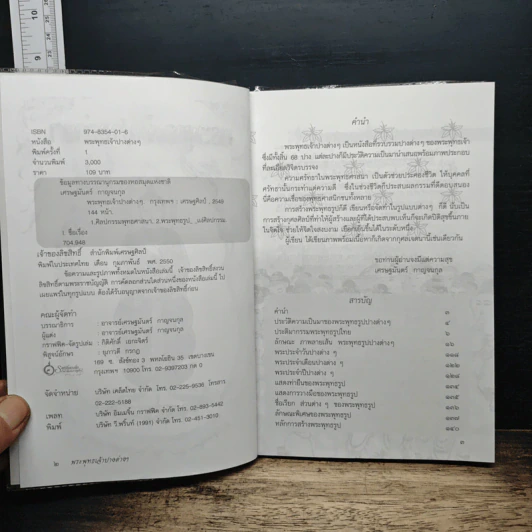 ISBN 974-8354-01-6
หนังสือ พระพุทธเจ้าปางต่างๆ
พิมพ์ครั้งที่ 1
จำนวนพิมพ์ 3,000
ราคา 109 บาท
ข้อมูลทางบรรณานุกรมของหอสมุดแห่งชาติ
เศรษฐมันตร์ กาญจนกุล
พระพุทธเจ้าปางต่างๆ. กรุงเทพฯ : เศรษฐศิลป์, 2549
144 หน้า.
1.ศิลปกรรมพุทธศาสนา. 2.พระพุทธรูป_ _แง่ศิลปกรรม
1. ชื่อเรื่อง
704.948
เจ้าของลิขสิทธิ์ สำนักพิมพ์เศรษฐศิลป์
พิมพ์ในประเทศไทย เดือน กุมภาพันธ์ พศ. 2550
ข้อความและรูปภาพทั้งหมดในหนังสือเล่มนี้ เจ้าของลิขสิทธิ์สงวน
ลิขสิทธิ์ตามพระราชบัญญัติ การคัดลอกส่วนใดส่วนหนึ่งของหนังสือเล่มนี้ ไป
เผยแพร่ในทุกรูปแบบ ต้องได้รับอนุญาตจากเจ้าของลิขสิทธิ์ก่อน
คณะผู้จัดทำ
บรรณาธิการ : อาจารย์เศรษฐมันตร์ กาญจนกุล
ผู้แต่ง : อาจารย์เศรษฐมันตร์ กาญจนกุล
กราฟฟิค-จัดรูปเล่ม : กิติศักดิ์ เยกะจิตร์
พิสูจน์อักษร : ยุภาวดี กรกฎ
169 ซ. สังข์ทอง 3 พหลโยธิน 35 เขตบางเขน
กรุงเทพฯ 10900 โทร. 02-9397203 กด 0
จัดจำหน่าย บริษัท เคล็ดไทย จำกัด โทร. 02-225-9536 โทรสาร
02-222-5188
เพลท บริษัท อิมเมจิ้น กราฟฟิค จำกัด โทร. 02-893-5440
พิมพ์ บริษัท วี.พริ้นท์ (1991) จำกัด โทร. 02-451-3010
๒ พระพุทธเจ้าปางต่างๆ
คำนำ
พระพุทธเจ้าปางต่างๆ เป็นหนังสือที่รวบรวมปางต่างๆ ของพระพุทธเจ้า
ซึ่งมีทั้งสิ้น 68 ปาง แต่ละปางก็มีประวัติความเป็นมานำเสนอพร้อมภาพประกอบ
ความศรัทธาในพระพุทธศาสนา เป็นตัวช่วยประคองชีวิต ให้บุคคลที่
ศรัทธานั้นกระทำแต่ความดี ซึ่งในช่วงชีวิตก็ประสบผลกรรมที่ดีตอบสนอง
นี่คือความเชื่อของพุทธศาสนิกชนทั้งหลาย
การสร้างพระพุทธรูปก็ดี เขียนหรือจัดทำในรูปแบบต่างๆ ก็ดี นับเป็น
การสร้างกุศลศิลป์ที่ทำให้ผู้สร้างและผู้ที่ได้ประสบพบเห็นก็จะเกิดปีติสุขขึ้นภาย
ในจิตใจ ช่วยให้จิตใจสงบงาม เยือกเย็นขึ้นได้ในระดับหนึ่ง
ผู้เขียน ได้เขียนภาพพร้อมเนื้อหาก็เกิดจากกุศลเจตนานี้เช่นเดียวกัน
ขอท่านผู้อ่านจงมีแต่ความสุข
เศรษฐมันตร์ กาญจนกุล
สารบัญ
คำนำ ๓
ประวัติความเป็นมาของพระพุทธรูปปางต่างๆ
ประติมากรรมพระพุทธรูปไทย
ลักษณะ ภาพลายเส้น พระพุทธรูปปางต่างๆ
พระประจำวันปางต่างๆ
พระประจำเดือนปางต่างๆ
พระประจำปีปางต่างๆ
แสดงท่ายืนของพระพุทธรูป
แสดงการวางมือของพระพุทธรูป
ชื่อเรียก ส่วนต่างๆ ของพระพุทธรูป
ลักษณะพิเศษของพระพุทธรูป
หลักการสร้างพระพุทธรูป ๑๔๐
๓